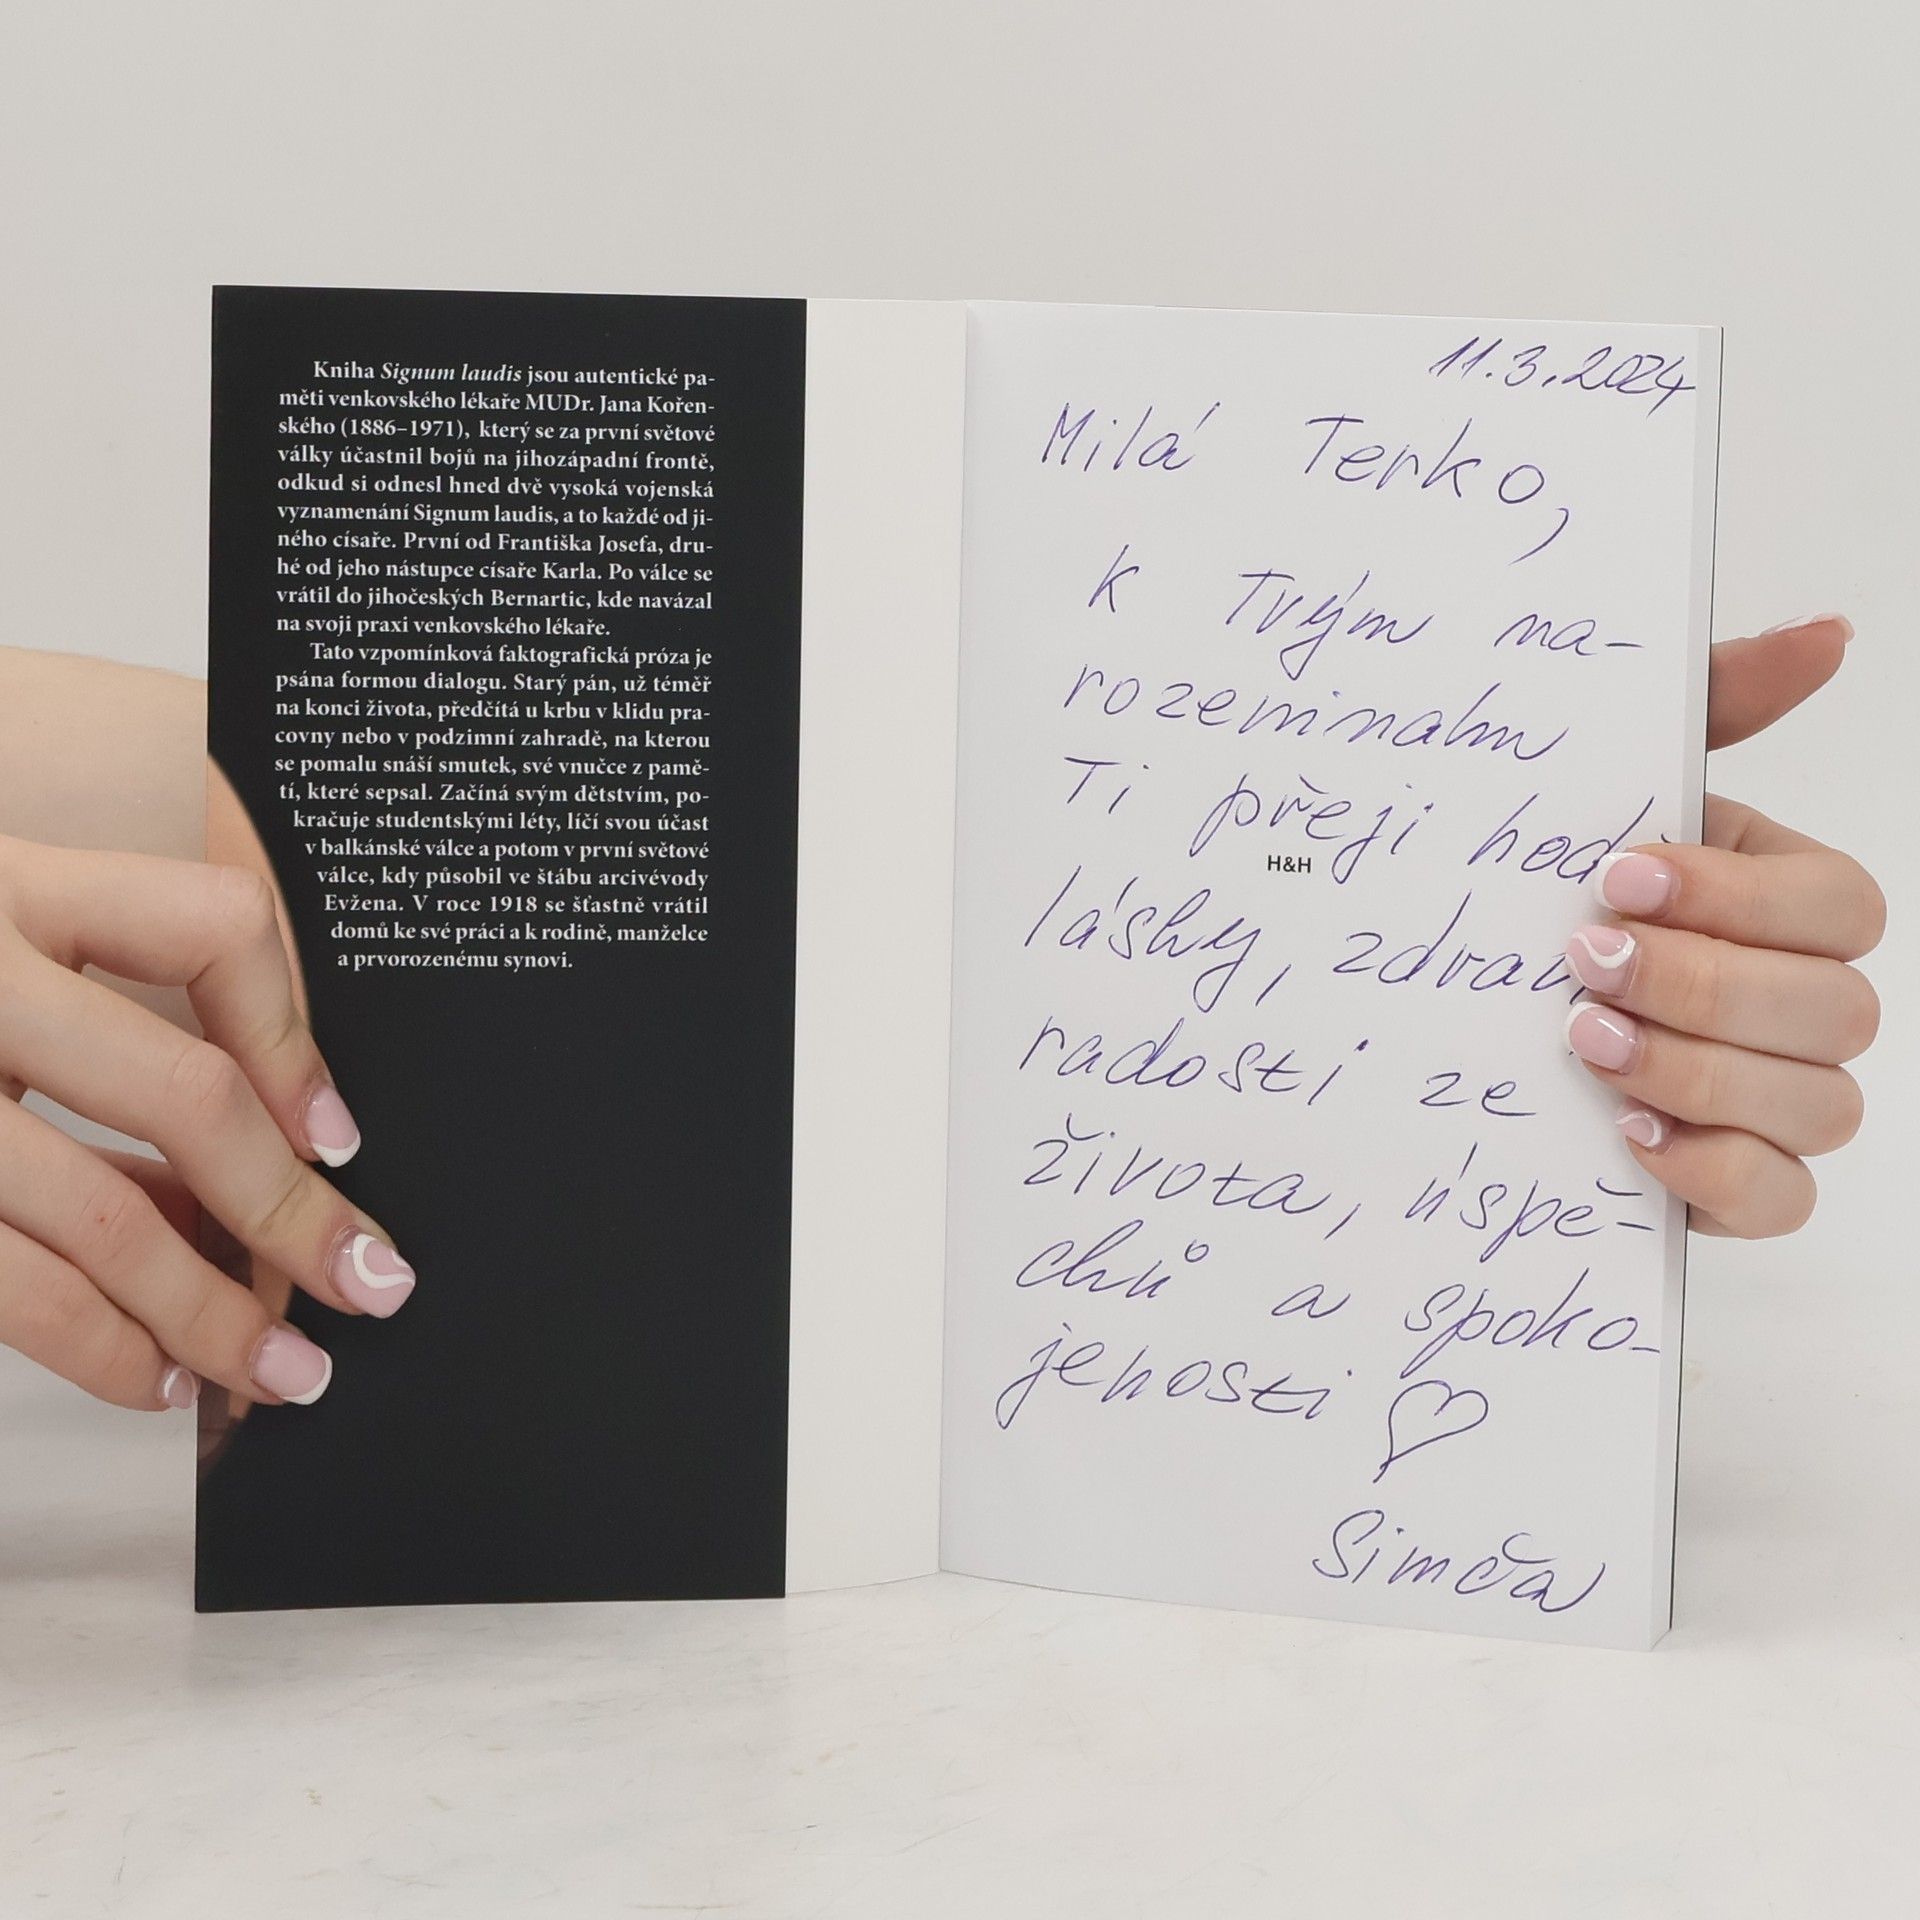 Kniha Signum laudis jsou autentické pa-
měti venkovského lékaře MUDr. Jana Kořen-
ského (1886–1971), který se za první světové
války účastnil bojů na jihozápadní frontě,
odkud si odnesl hned dvě vysoká vojenská
vyznamenání Signum laudis, a to každé od ji-
ného císaře. První od Františka Josefa, dru-
hé od jeho nástupce císaře Karla. Po válce se
vrátil do jihočeských Bernartic, kde navázal
na svoji praxi venkovského lékaře.
Tato vzpomínková faktografická próza je
psána formou dialogu. Starý pán, už téměř
na konci života, předčítá u krbu v klidu pra-
covny nebo v podzimní zahradě, na kterou
se pomalu snáší smutek, své vnučce z pamě-
tí, které sepsal. Začíná svým dětstvím, po-
kračuje studentskými léty, líčí svou účast
v balkánské válce a potom v první světové
válce, kdy působil ve štábu arcivévody
Evžena. V roce 1918 se šťastně vrátil
domů ke své práci a k rodině, manželce
a prvorozenému synovi.
11.3.2024
Milá Terko,
k Tvým na-
rozeninám
Ti přeji
H&H
lásky,
radosti ze
života, úspě-
chů a spoko-
jenosti ♡
Simča